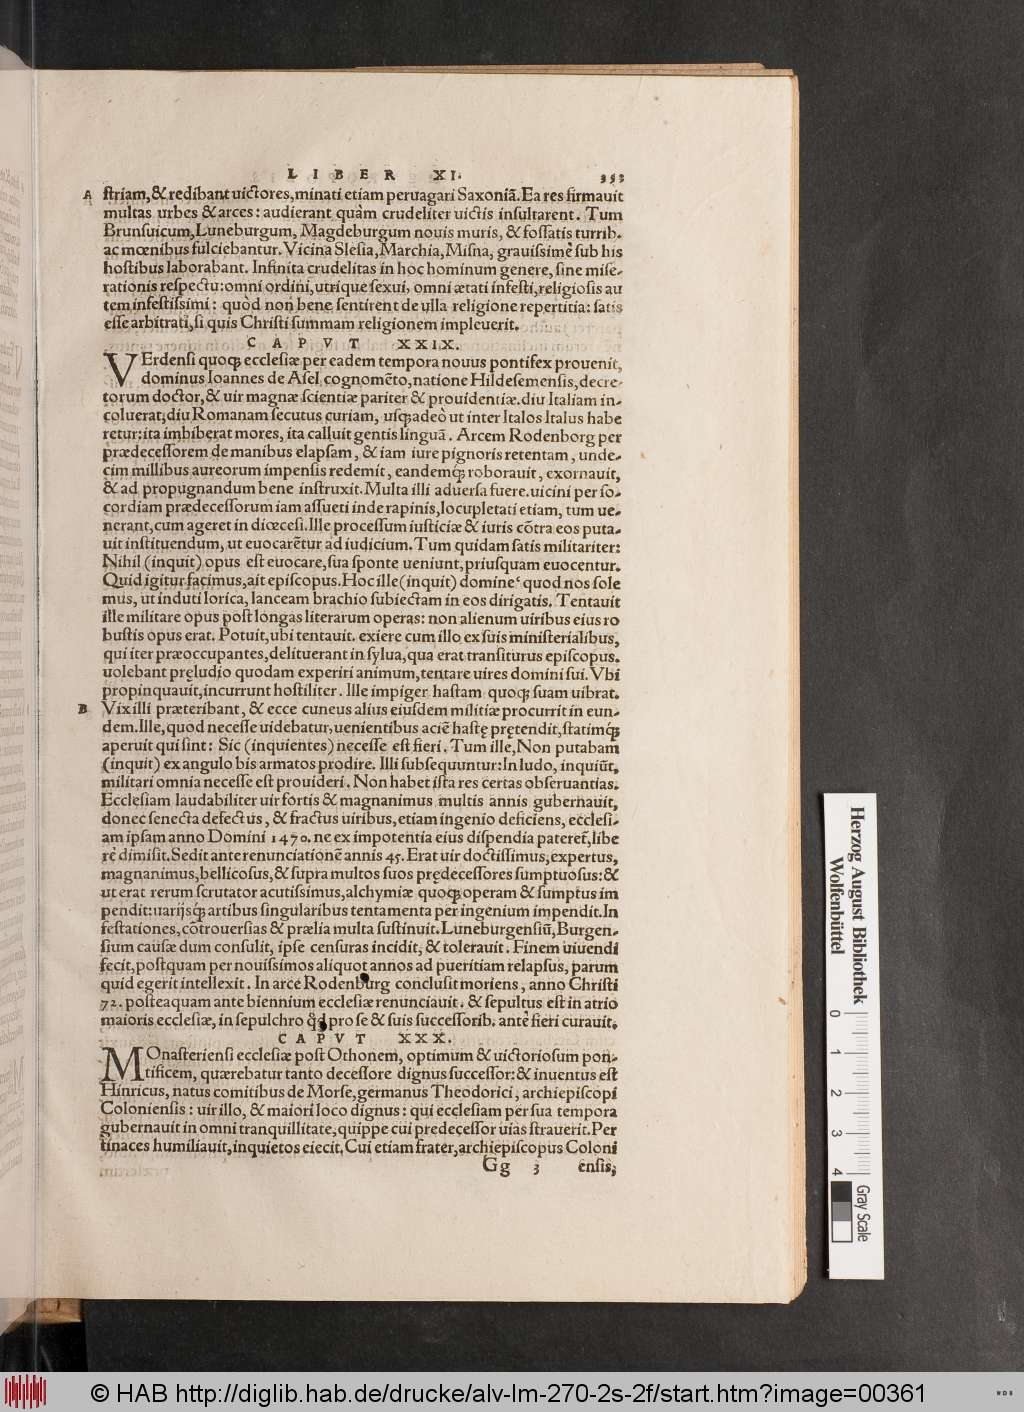 LIBER XI. 353
A striam,& redibant uictores,minati etiam peruagari Saxoniã. Ea res firmauit
multas urbes & arces: audierant quàm crudeliter uictis insultarent. Tum
Brunsuicum,Luneburgum, Magdeburgum nouis muris, & fossatis turrib.
ac mœnibus fulciebantur. Vicina Slesia,Marchia,Misna, grauissimè sub his
hostibus laborabant. Infinita crudelitas in hoc hominum genere, sine mise-
rationis respectu:omni ordini,utrique sexui, omni ætati infesti,religiosis au
tem infestissimi: quòd non bene sentirent de ulla religione repertitia: satis
esse arbitrati,si quis Christi summam religionem impleuerit.
CAPVT XXIX.
VErdensi quoq; ecclesiæ per eadem tempora nouus pontifex prouenit,
dominus Ioannes de Asel cognomẽto,natione Hildesemensis,decre-
torum doctor,& uir magnæ scientiæ pariter & prouidentiæ.diu Italiam in-
coluerat;diu Romanam secutus curiam, usq;adeò ut inter Italos Italus habe
retur:ita imbiberat mores, ita calluit gentis linguã. Arcem Rodenborg per
prædecessorem de manibus elapsam, & iam iure pignoris retentam, unde-
cim millibus aureorum impensis redemit, eandemq́; roborauit, exornauit,
& ad propugnandum bene instruxit. Multa illi aduersa fuere.uicini per so-
cordiam prædecessorum iam assueti inde rapinis,locupletati etiam, tum ue-
nerant,cum ageret in diœcesi.Ille processum iusticiæ & iuris cõtra eos puta-
uit instituendum, ut euocarẽtur ad iudicium. Tum quidam satis militariter:
Nihil (inquit) opus est euocare,sua sponte ueniunt,priusquam euocentur.
Quid igitur facimus,ait episcopus. Hoc ille (inquit) domine quod nos sole
mus, ut induti lorica, lanceam brachio subiectam in eos dirigatis. Tentauit
ille militare opus post longas literarum operas: non alienum uiribus eius ro
bustis opus erat. Potuit,ubi tentauit. exiere cum illo ex suis ministerialibus,
qui iter præoccupantes,delituerant in sylua,qua erat transiturus episcopus.
uolebant pręludio quodam experiri animum,tentare uires domini sui. Vbi
propinquauit,incurrunt hostiliter. Ille impiger hastam quoq; suam uibrat.
B Vix illi præteribant, & ecce cuneus alius eiusdem militiæ procurrit in eun-
dem.Ille,quod necesse uidebatur,uenientibus aciẽ hastę prętendit,statimq́;
aperuit qui sint: Sic (inquientes) necesse est fieri. Tum ille,Non putabam
(inquit) ex angulo bis armatos prodire. Illi subsequuntur:In ludo, inquiũt,
militari omnia necesse est prouideri. Non habet ista res certas obseruantias.
Ecclesiam laudabiliter uir fortis & magnanimus multis annis gubernauit,
donec senecta defectus, & fractus uiribus,etiam ingenio deficiens, ecclesi-
am ipsam anno Domini 1470. ne ex impotentia eius dispendia pateret,libe
rè dimisit. Sedit ante renunciationẽ annis 45. Erat uir doctissimus,expertus,
magnanimus,bellicosus,& supra multos suos prędecessores sumptuosus:&
ut erat rerum scrutator acutissimus,alchymiæ quoq; operam & sumptus im
pendit:uarijsq́; artibus singularibus tentamenta per ingenium impendit. In
festationes,cõtrouersias & prælia multa sustinuit. Luneburgensiũ,Burgen-
sium causæ dum consulit, ipse censuras incidit, & tolerauit. Finem uiuendi
fecit,postquam per nouissimos aliquot annos ad pueritiam relapsus, parum
quid egerit intellexit. In arce Rodenburg conclusit moriens, anno Christi
72. posteaquam ante biennium ecclesiæ renunciauit. & sepultus est in atrio
maioris ecclesiæ, in sepulchro qd pro se & suis successorib. antè fieri curauit.
CAPVT XXX.
MOnasteriensi ecclesiæ post Othonem, optimum & uictoriosum pon-
tificem, quærebatur tanto decessore dignus successor:& inuentus est
Hinricus, natus comitibus de Morse,germanus Theodorici, archiepiscopi
Coloniensis: uir illo, & maiori loco dignus: qui ecclesiam per sua tempora
gubernauit in omni tranquillitate,quippe cui predecessor uias strauerit. Per
tinaces humiliauit,inquietos eiecit. Cui etiam frater,archiepiscopus Coloni
Gg 3 ensis;
Herzog August Bibliothek
Wolfenbüttel
0 1 2 3 4
Gray Scale
© HAB http://diglib.hab.de/drucke/alv-lm-270-2s-2f/start.htm?image=00361